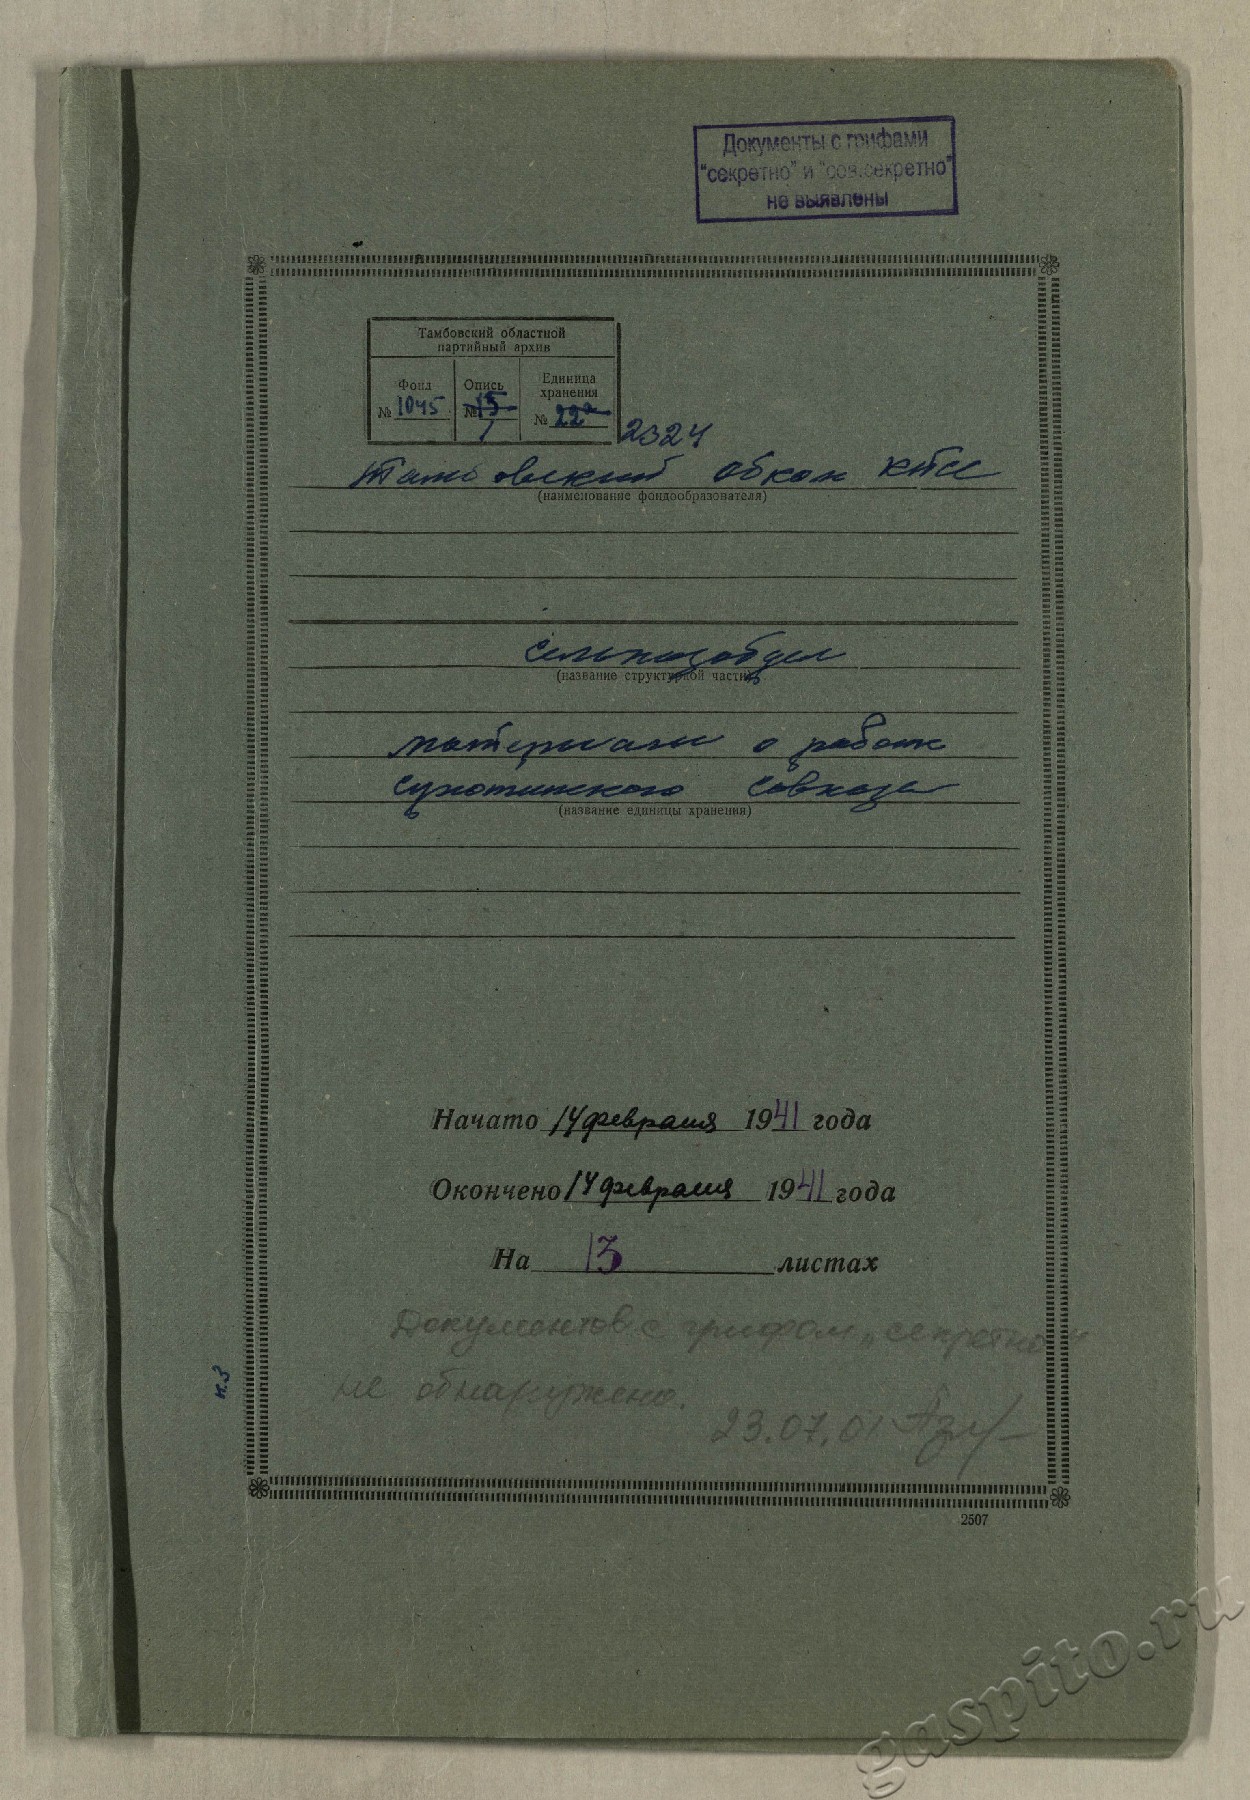 Документы с грифами
"секретно" и "сов.секретно"
не выявлены
Тамбовский областной
партийный архив
Фонд
№ 1045
Опись
№ 15
1
Единица
хранения
№ 22а
2324
Тамбовский обком КПСС
(наименование фондообразователя)
Сельхозотдел
(название структурной части)
материалы о работе
Сухотинского совхоза
(название единицы хранения)
Начато 14 февраля 1941 года
Окончено 14 февраля 1941 года
На 13 листах
Документов с грифом „секретно"
не обнаружено.
23.07.01
к.3
2507
gaspito.ru